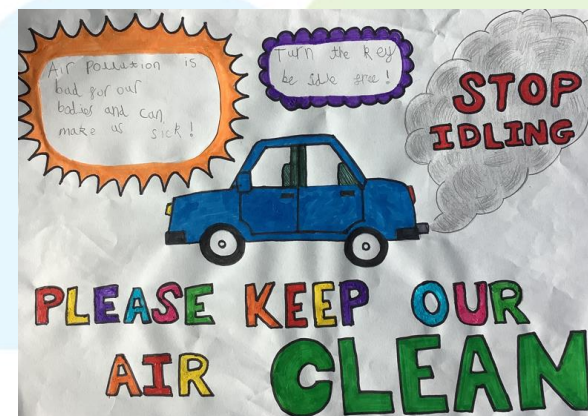 Air Pollution is
bad for our
bodies and can
make us sick!
Turn the key
be idle free!
STOP
IDLING
PLEASE KEEP OUR
AIR CLEAN